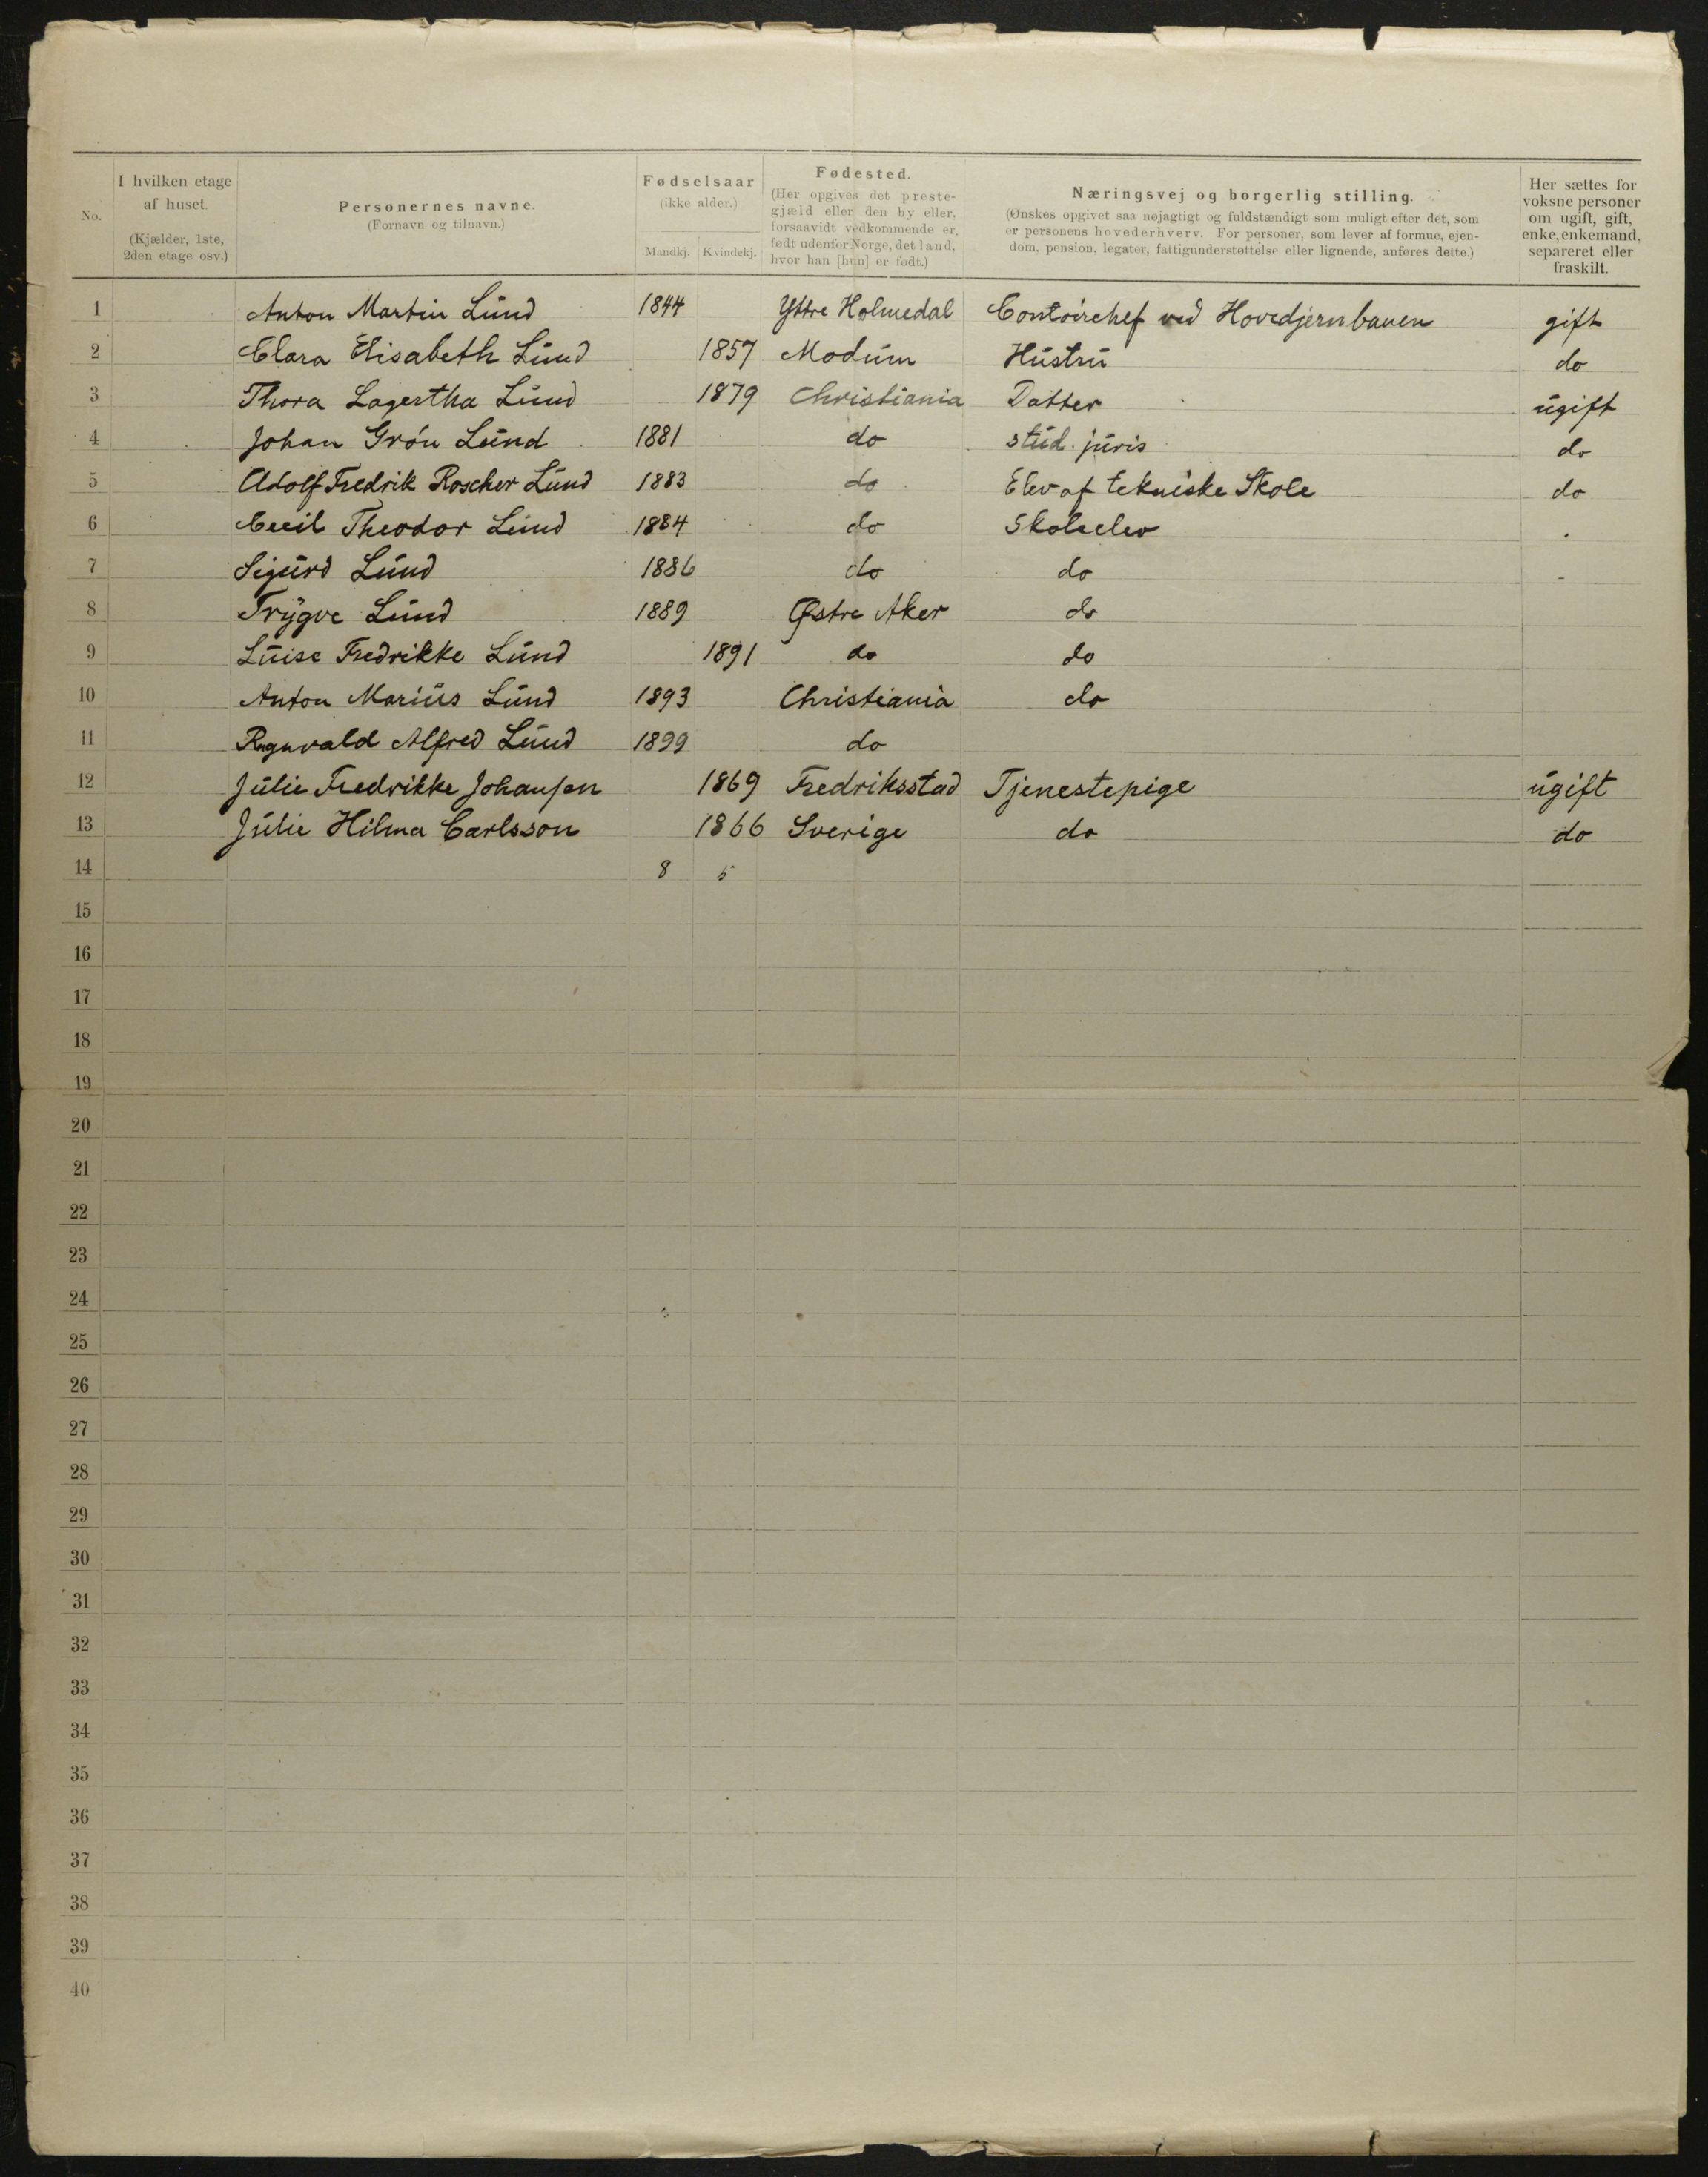 No.
I hvilken etage af huset. (Kjælder, 1ste, 2den etage osv.)
Personernes navne. (Fornavn og tilnavn.)
Fødselsaar (ikke alder.)
Mandkj. Kvindekj.
Fødested.
(Her opgives det preste-
gjæld eller den by eller,
forsaavidt vedkommende er
født udenfor Norge, det land,
hvor han [hun] er født.)
Næringsvej og borgerlig stilling.
(Ønskes opgivet saa nøjagtigt og fuldstændigt som muligt efter det, som
er personens hovederhverv. For personer, som lever af formue, ejen-
dom, pension, legater, fattigunderstøttelse eller lignende, anføres dette.)
Her sættes for
voksne personer
om ugift, gift,
enke, enkemand,
separeret eller
fraskilt.
1 Anton Martin Lund 1844 Yttre Holmedal Contoirchef ved Hovedjernbanen gift
2 Clara Elisabeth Lund 1857 Modum Hustru do
3 Thora Lagertha Lund 1879 Christiania Datter ugift
4 Johan Grön Lund 1881 do stud. juris do
5 Adolf Fredrik Roscher Lund 1883 do Elev af tekniske Skole do
6 Cecil Theodor Lund 1884 do Skoleelev
7 Sigurd Lund 1886 do do
8 Trygve Lund 1889 Østre Aker do
9 Luise Fredrikke Lund 1891 do do
10 Anton Marius Lund 1893 Christiania do
11 Ragnvald Alfred Lund 1899 do
12 Julie Fredrikke Johansen 1869 Fredriksstad Tjenestepige ugift
13 Julie Hilma Carlsson 1866 Sverige do do
14 8 5
15
16
17
18
19
20
21
22
23
24
25
26
27
28
29
30
31
32
33
34
35
36
37
38
39
40